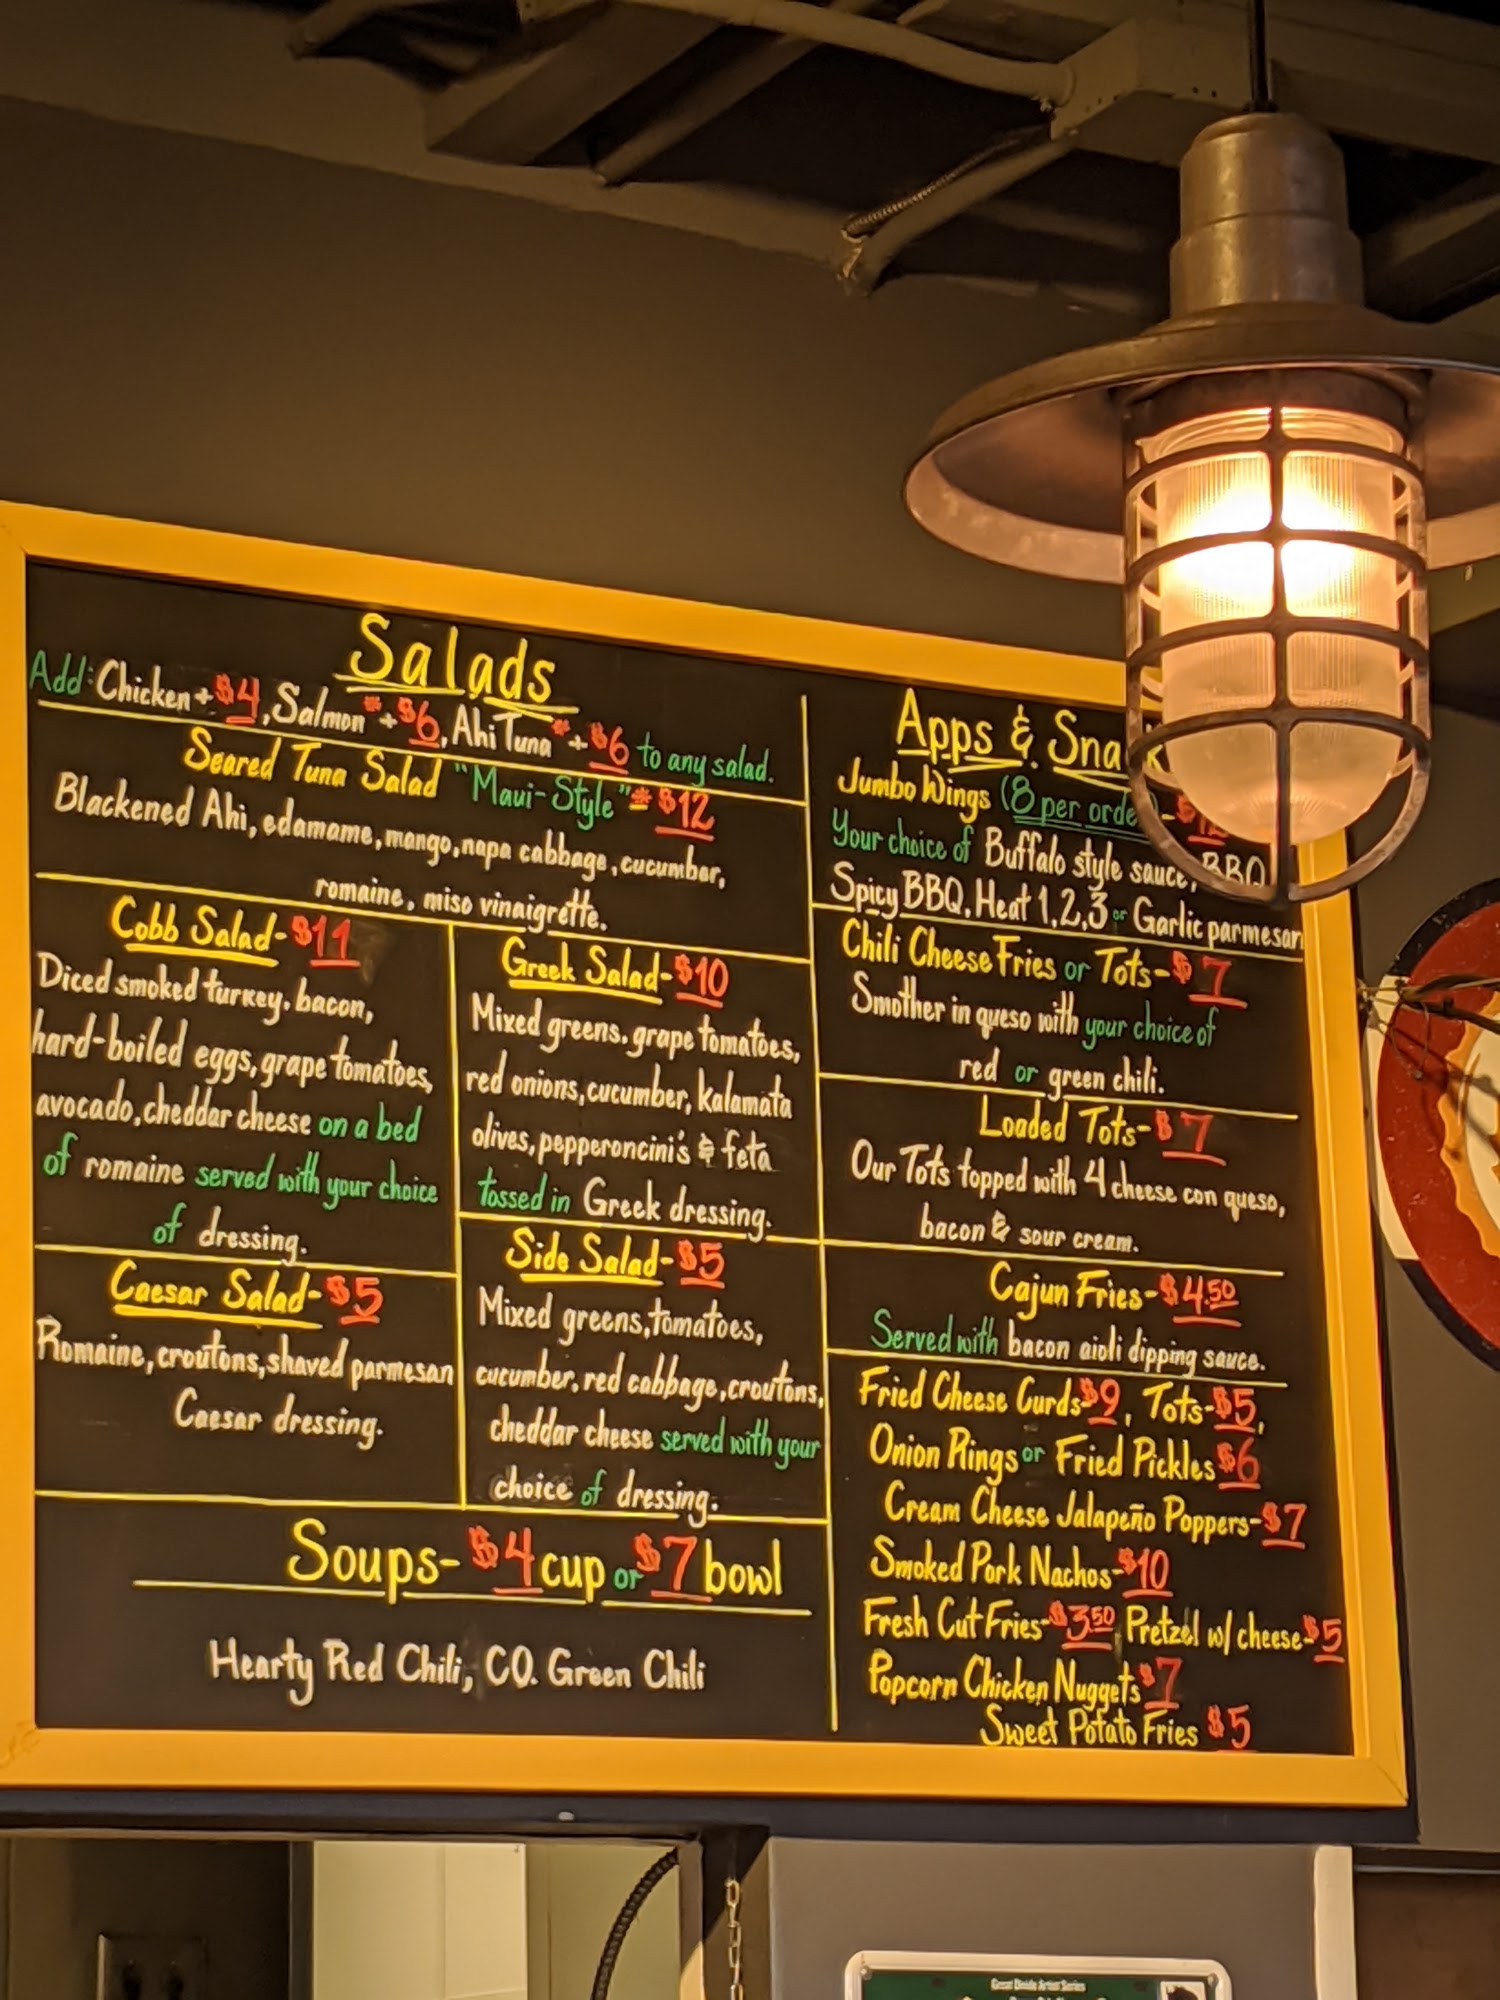 Salads
Add: Chicken + $4, Salmon* + $6, Ahi Tuna* + $6 to any salad.
Seared Tuna Salad "Maui-Style"* $12
Blackened Ahi, edamame, mango, napa cabbage, cucumber,
romaine, miso vinaigrette.
Cobb Salad - $11
Diced smoked turkey, bacon,
hard-boiled eggs, grape tomatoes,
avocado, cheddar cheese on a bed
of romaine served with your choice
of dressing.
Caesar Salad - $5
Romaine, croutons, shaved parmesan
Caesar dressing.
Greek Salad - $10
Mixed greens, grape tomatoes,
red onions, cucumber, kalamata
olives, pepperoncini's & feta
tossed in Greek dressing.
Side Salad - $5
Mixed greens, tomatoes,
cucumber, red cabbage, croutons,
cheddar cheese served with your
choice of dressing.
Soups - $4 cup or $7 bowl
Hearty Red Chili, CO. Green Chili
Apps &
Jumbo Wings (8 per order) -
Your choice of Buffalo style sauce, BBQ
Spicy BBQ, Heat 1,2,3 or Garlic parmesan
Chili Cheese Fries or Tots - $7
Smother in queso with your choice of
red or green chili.
Loaded Tots - $7
Our Tots topped with 4 cheese con queso,
bacon & sour cream.
Cajun Fries - $4.50
Served with bacon aioli dipping sauce.
Fried Cheese Curds $9, Tots - $5,
Onion Rings or Fried Pickles $6
Cream Cheese Jalapeño Poppers - $7
Smoked Pork Nachos - $10
Fresh Cut Fries - $3.50 Pretzel w/ cheese - $5
Popcorn Chicken Nuggets $7
Sweet Potato Fries $5
Great Divide Artist Series